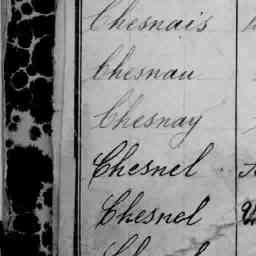 Chesnais
Chesnau
Chesnay
Chesnel
Chesnel